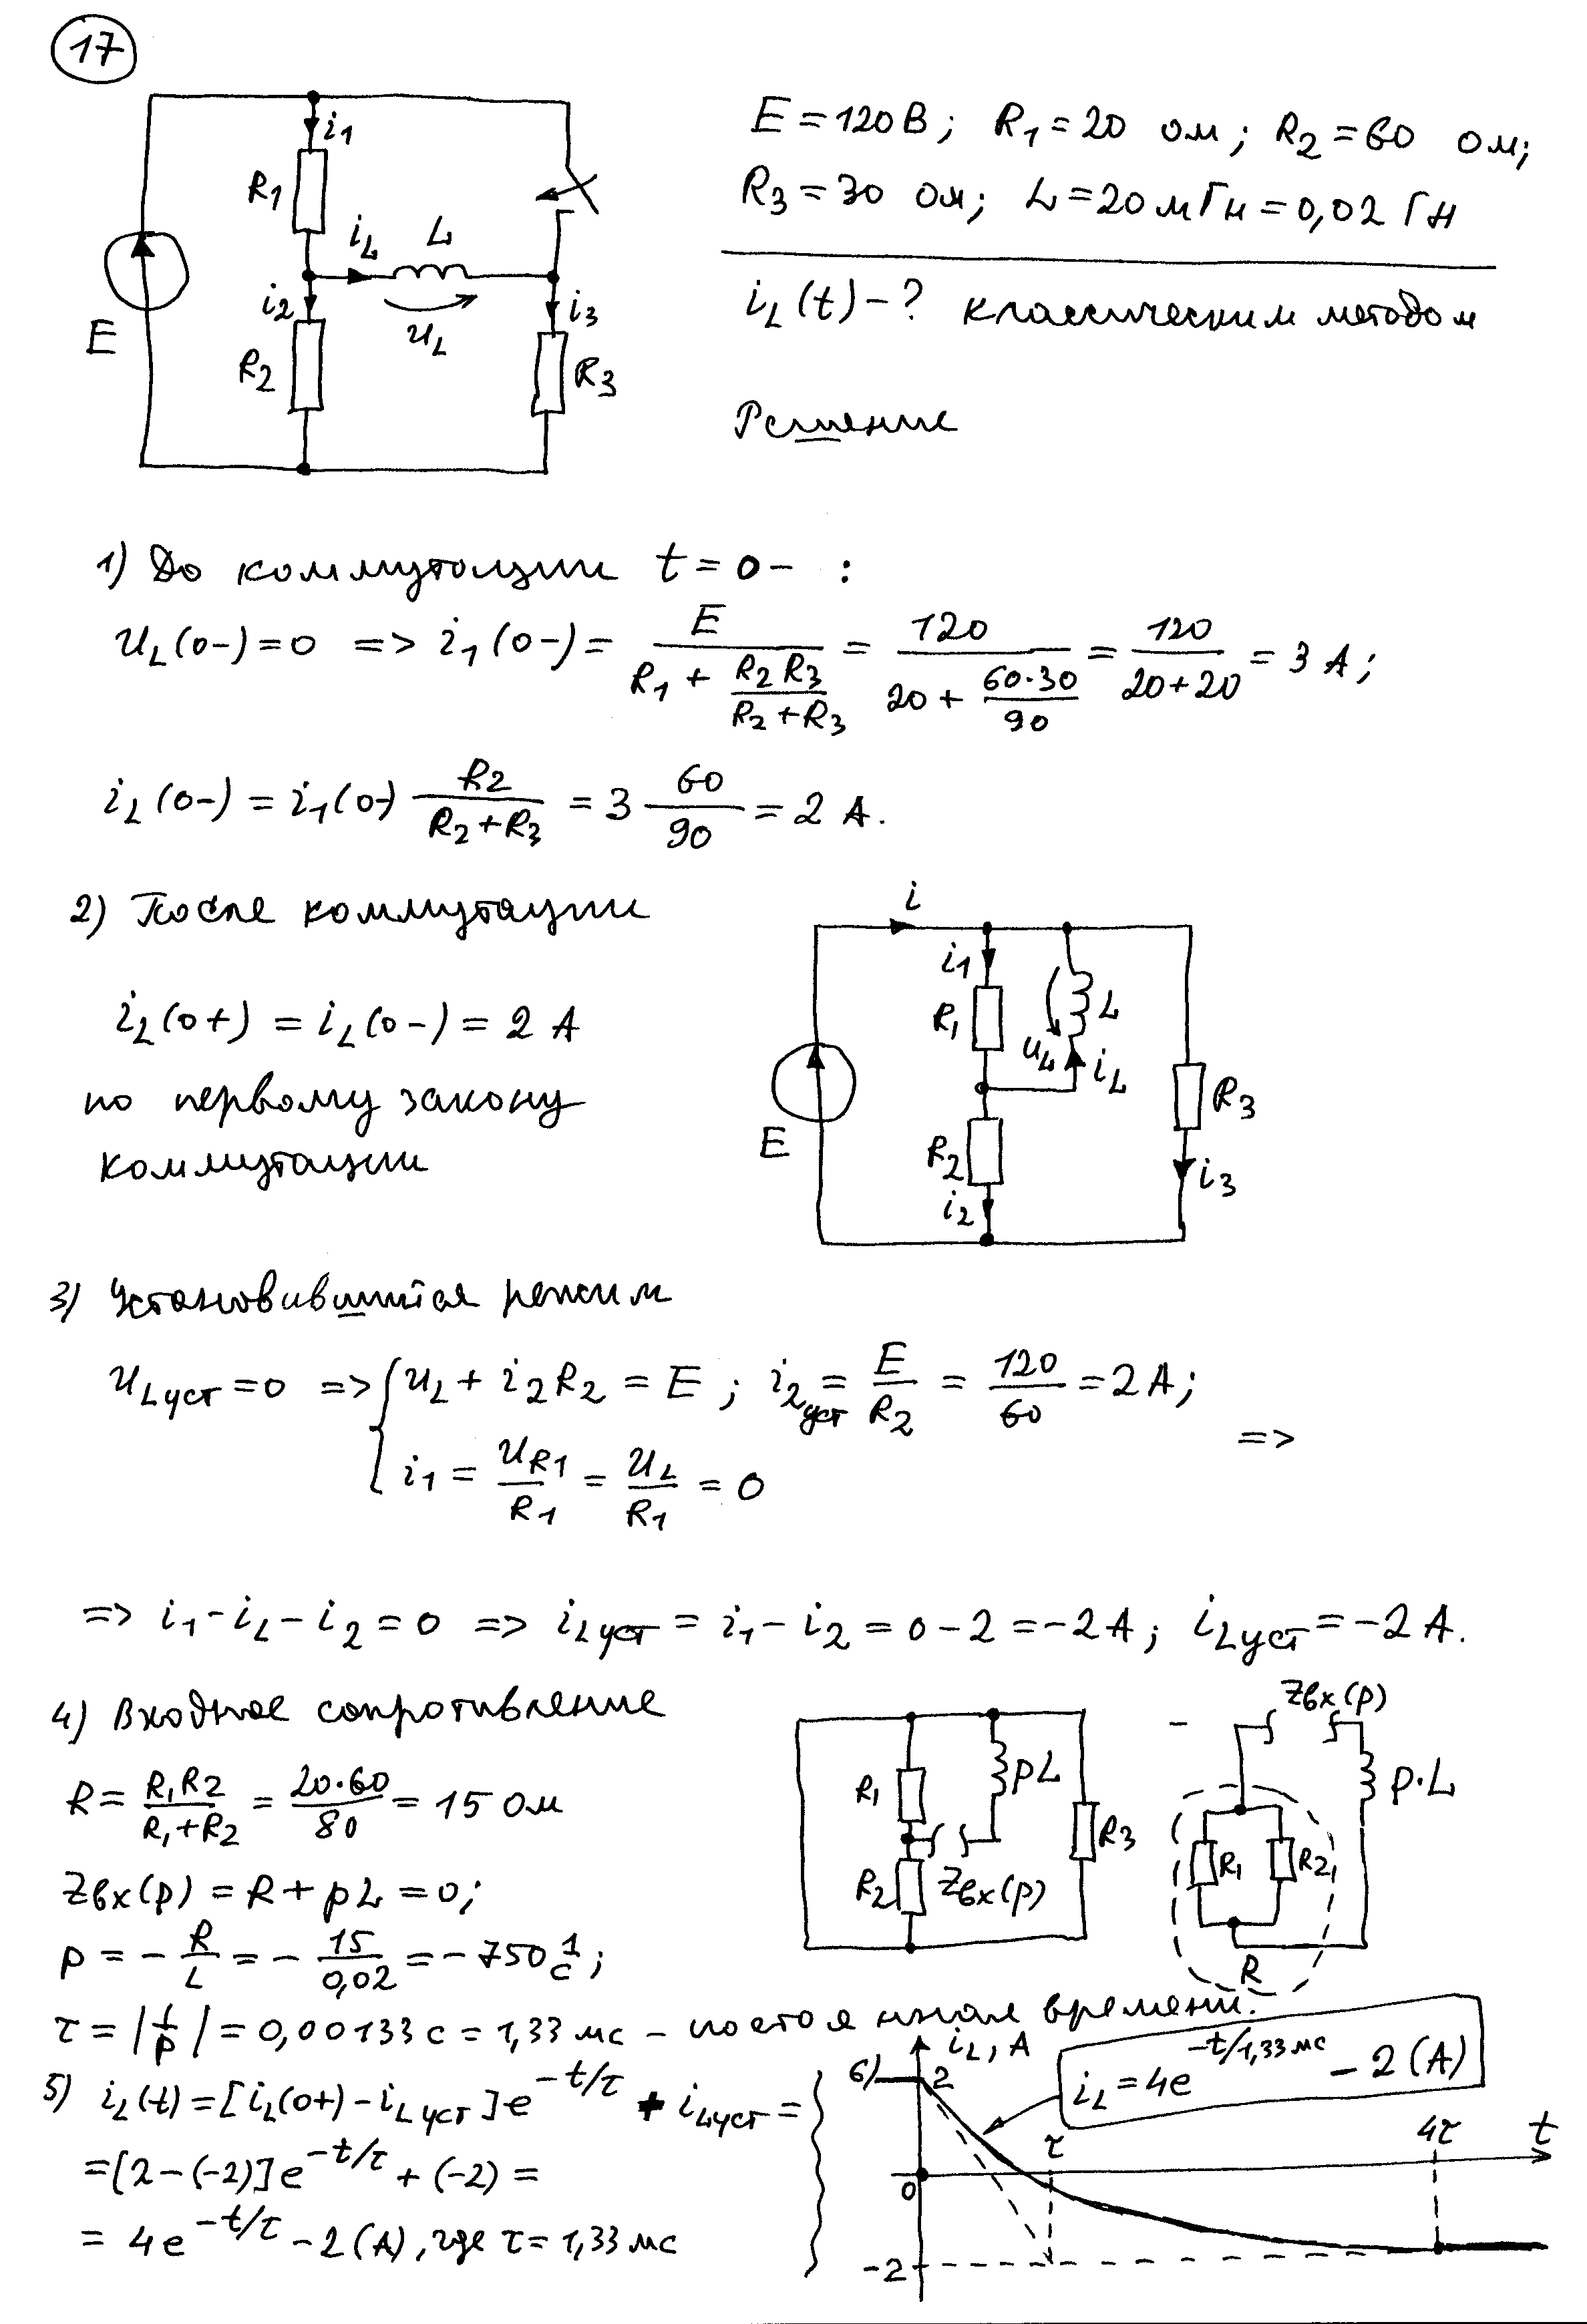 17
E = 120 В; R1 = 20 ом; R2 = 60 ом;
R3 = 30 ом; L = 20 мГн = 0,02 Гн
iL(t) - ? классическим методом
Решение
E
i1
R1
iL
L
i2
uL
i3
R2
R3
1) До коммутации t = 0- :
uL(0-) = 0 => i1(0-) = E / (R1 + R2R3/(R2+R3)) = 120 / (20 + 60·30/90) = 120/(20+20) = 3 А;
iL(0-) = i1(0-) R2/(R2+R3) = 3 60/90 = 2 А.
2) После коммутации
iL(0+) = iL(0-) = 2 А
по первому закону
коммутации
i
i1
R1
uL
L
iL
R3
E
R2
i2
i3
3) Установившийся режим
uLуст = 0 => { uL + i2R2 = E; i2уст = E/R2 = 120/60 = 2 А;
i1 = uR1/R1 = uL/R1 = 0 =>
=> i1 - iL - i2 = 0 => iLуст = i1 - i2 = 0 - 2 = -2 А; iLуст = -2 А.
4) Входное сопротивление
R = R1R2/(R1+R2) = 20·60/80 = 15 Ом
Zвх(p) = R + pL = 0;
p = - R/L = - 15/0,02 = - 750 1/с;
R1
pL
R3
R2
Zвх(p)
Zвх(p)
p·L
R1
R2
R
τ = |1/p| = 0,00133 с = 1,33 мс - постоянная времени.
5) iL(t) = [iL(0+) - iLуст]·e^(-t/τ) + iLуст =
= [2 - (-2)] e^(-t/τ) + (-2) =
= 4e^(-t/τ) - 2 (А), где τ = 1,33 мс
6)
iL, А
2
iL = 4e^(-t/1,33 мс) - 2 (А)
τ
4τ
t
0
-2